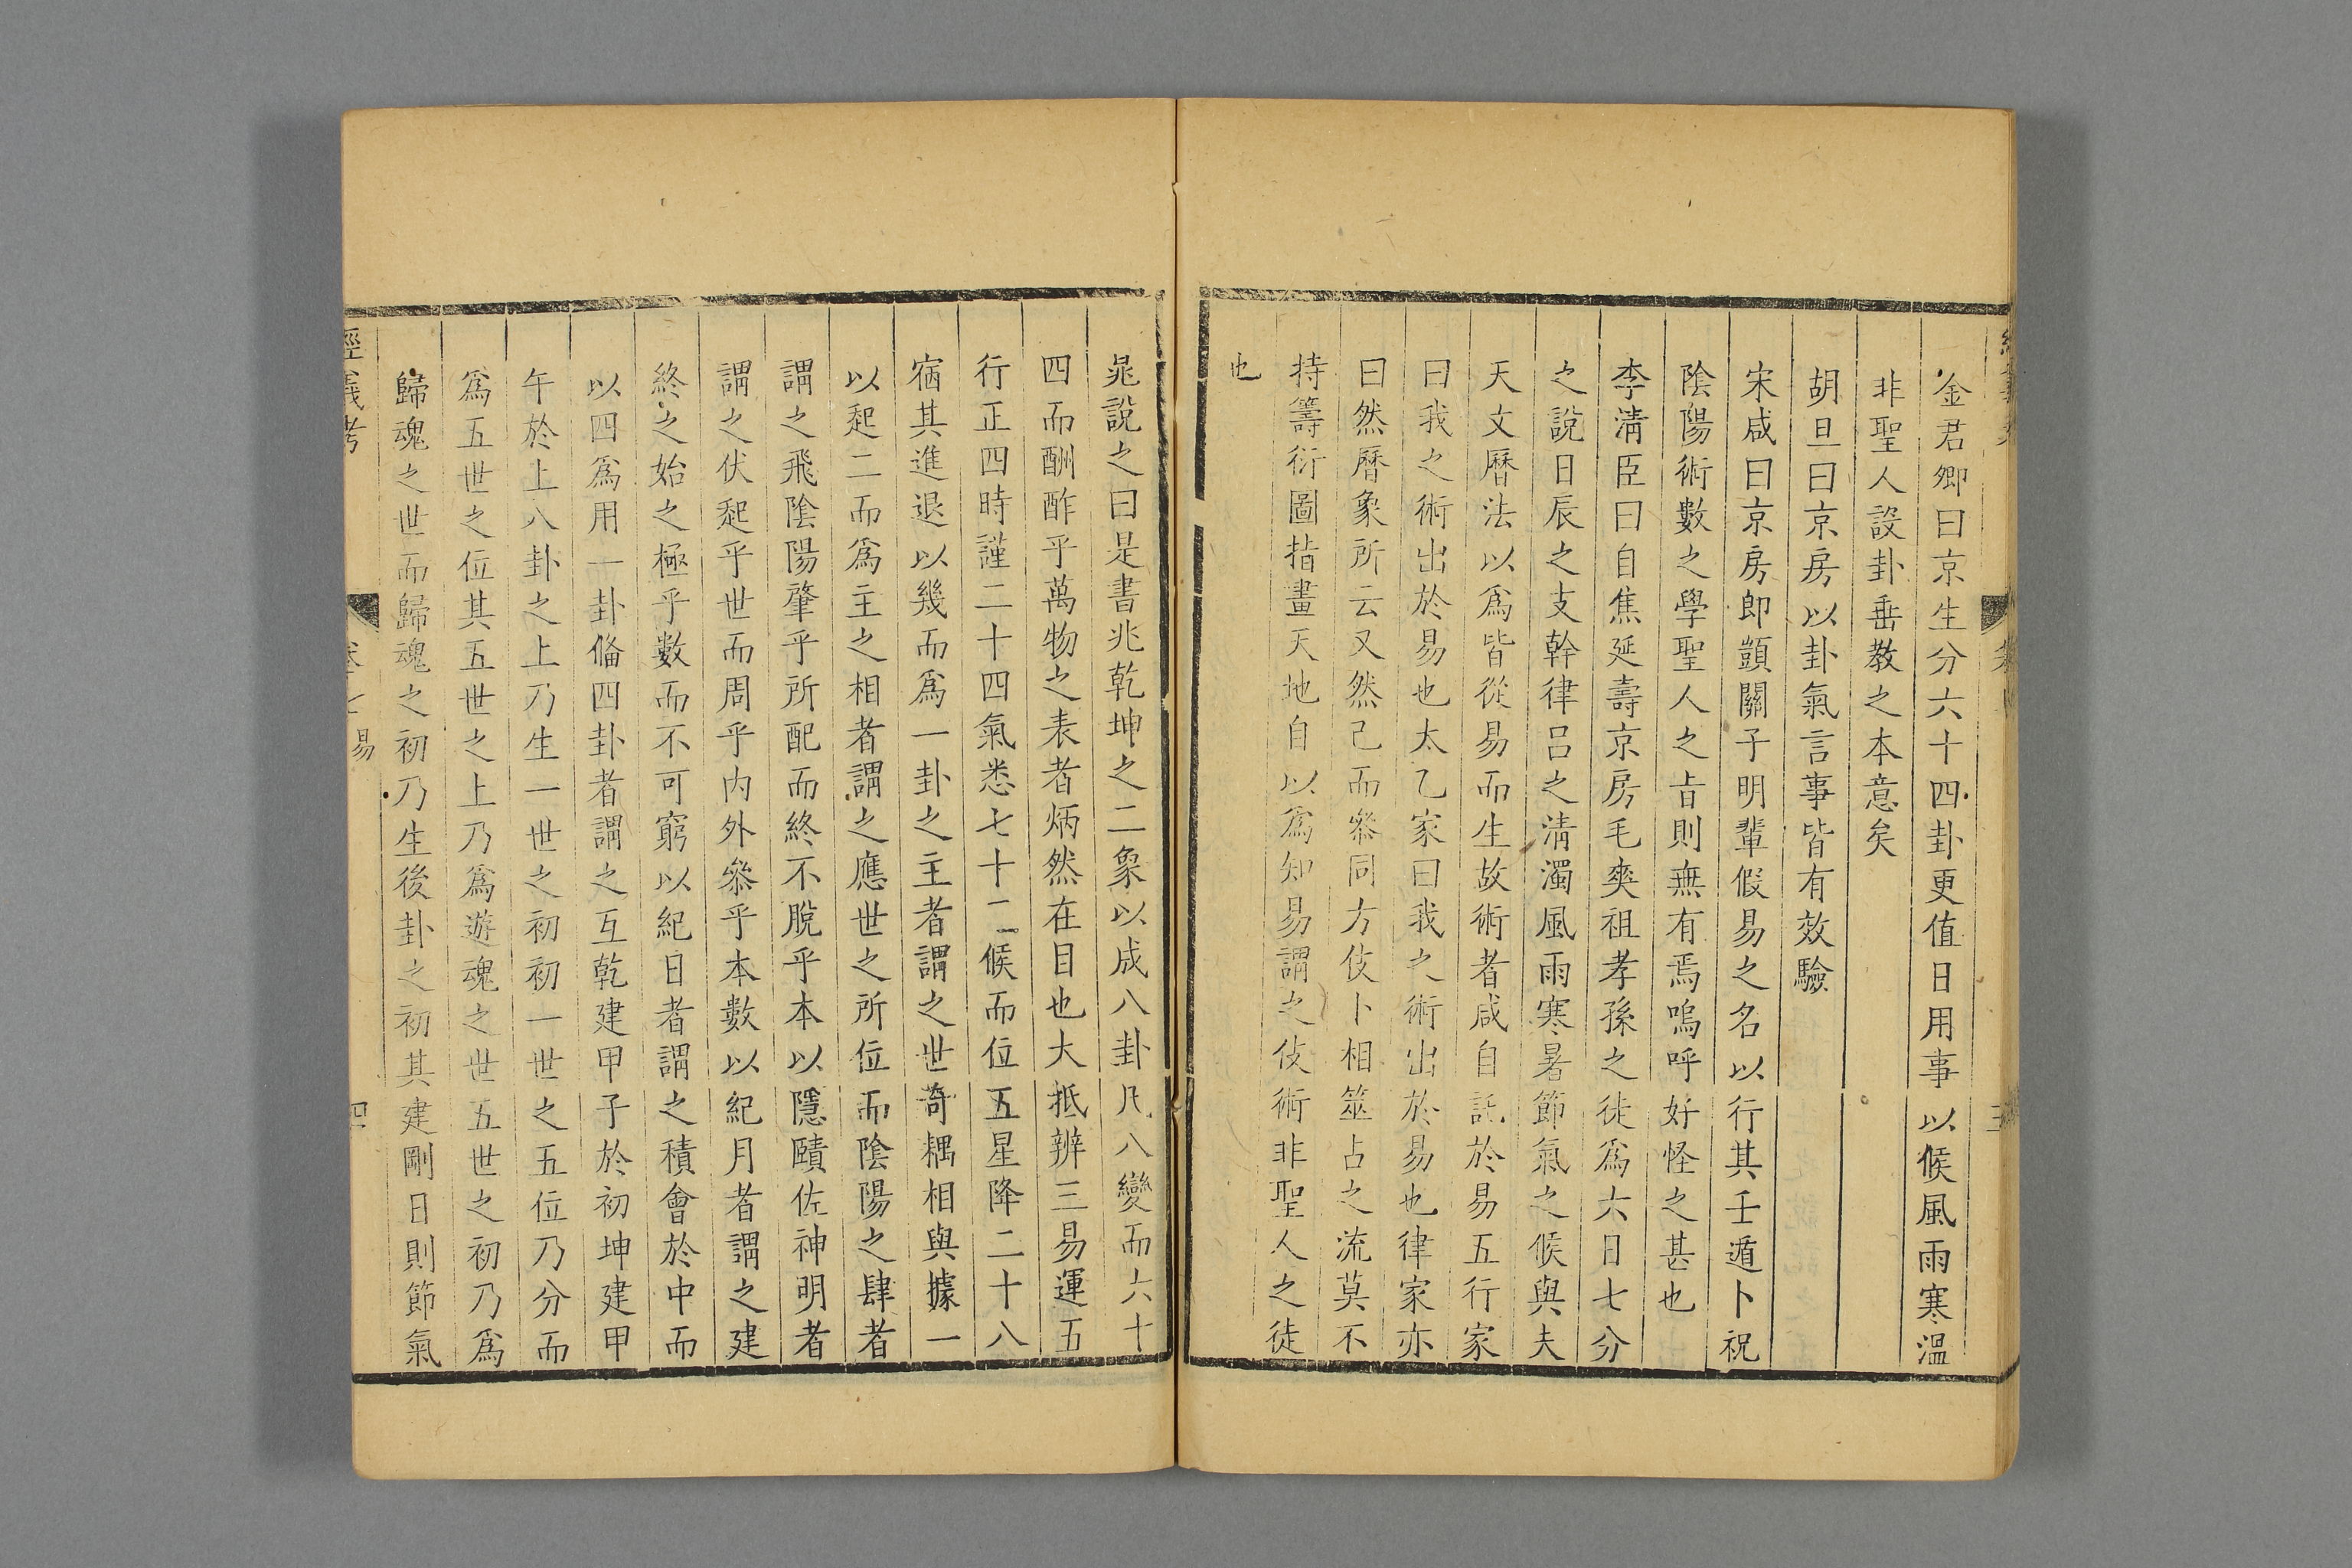 金君卿曰京生分六十四卦更值日用事以候風雨寒溫
非聖人設卦垂教之本意矣
胡旦曰京房以卦氣言事皆有效驗
宋咸曰京房郎顗關子明輩假易之名以行其壬遁卜祝
陰陽術數之學聖人之旨則無有焉嗚呼好怪之甚也
李淸臣曰自焦延壽京房毛奭祖孝孫之徒爲六日七分
之說日辰之支幹律呂之淸濁風雨寒暑節氣之候與夫
天文曆法以爲皆從易而生故術者咸自託於易五行家
曰我之術出於易也太乙家曰我之術出於易也律家亦
曰然曆象所云又然己而叅同方伎卜相筮占之流莫不
持籌衍圖指畫天地自以爲知易謂之伎術非聖人之徒
也
晁說之曰是書兆乾坤之二象以成八卦凡八變而六十
四而酬酢乎萬物之表者炳然在目也大抵辨三易運五
行正四時謹二十四氣悉七十二候而位五星降二十八
宿其進退以幾而爲一卦之主者謂之世奇耦相與據一
以起二而爲主之相者謂之應世之所位而陰陽之肆者
謂之飛陰陽肇乎所配而終不脫乎本以隱賾佐神明者
謂之伏起乎世而周乎內外叅乎本數以紀月者謂之建
終之始之極乎數而不可窮以紀日者謂之積會於中而
以四爲用一卦備四卦者謂之互乾建甲子於初坤建甲
午於上八卦之上乃生一世之初初一世之五位乃分而
爲五世之位其五世之上乃爲遊魂之世五世之初乃爲
歸魂之世而歸魂之初乃生後卦之初其建剛日則節氣
經義考
卷
易
四